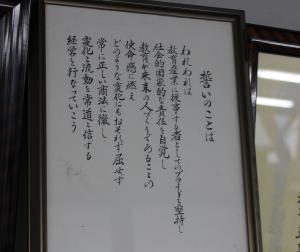 誓いのことば
われわれは
教育産業に従事する者としてのプライドを堅持し
社会的国家的な責任を自覚し
教育が未来の人づくりであることの
使命感に燃え
どのような変化にもおそれず屈せず
常に正しい商法に徹し
変化と流動を常道と信ずる
経営を行なっていこう